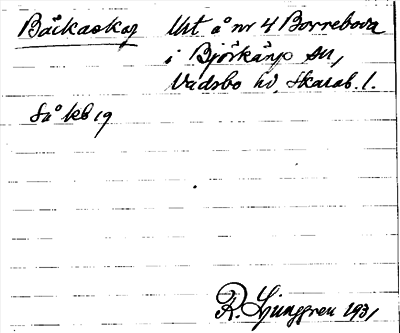 Bäckaskog Urt å nr 4 Borreboda
i Björkäng sn,
Vadsbo hd, Skarab. l.
Så kb 19
R. Ljunggren 1931